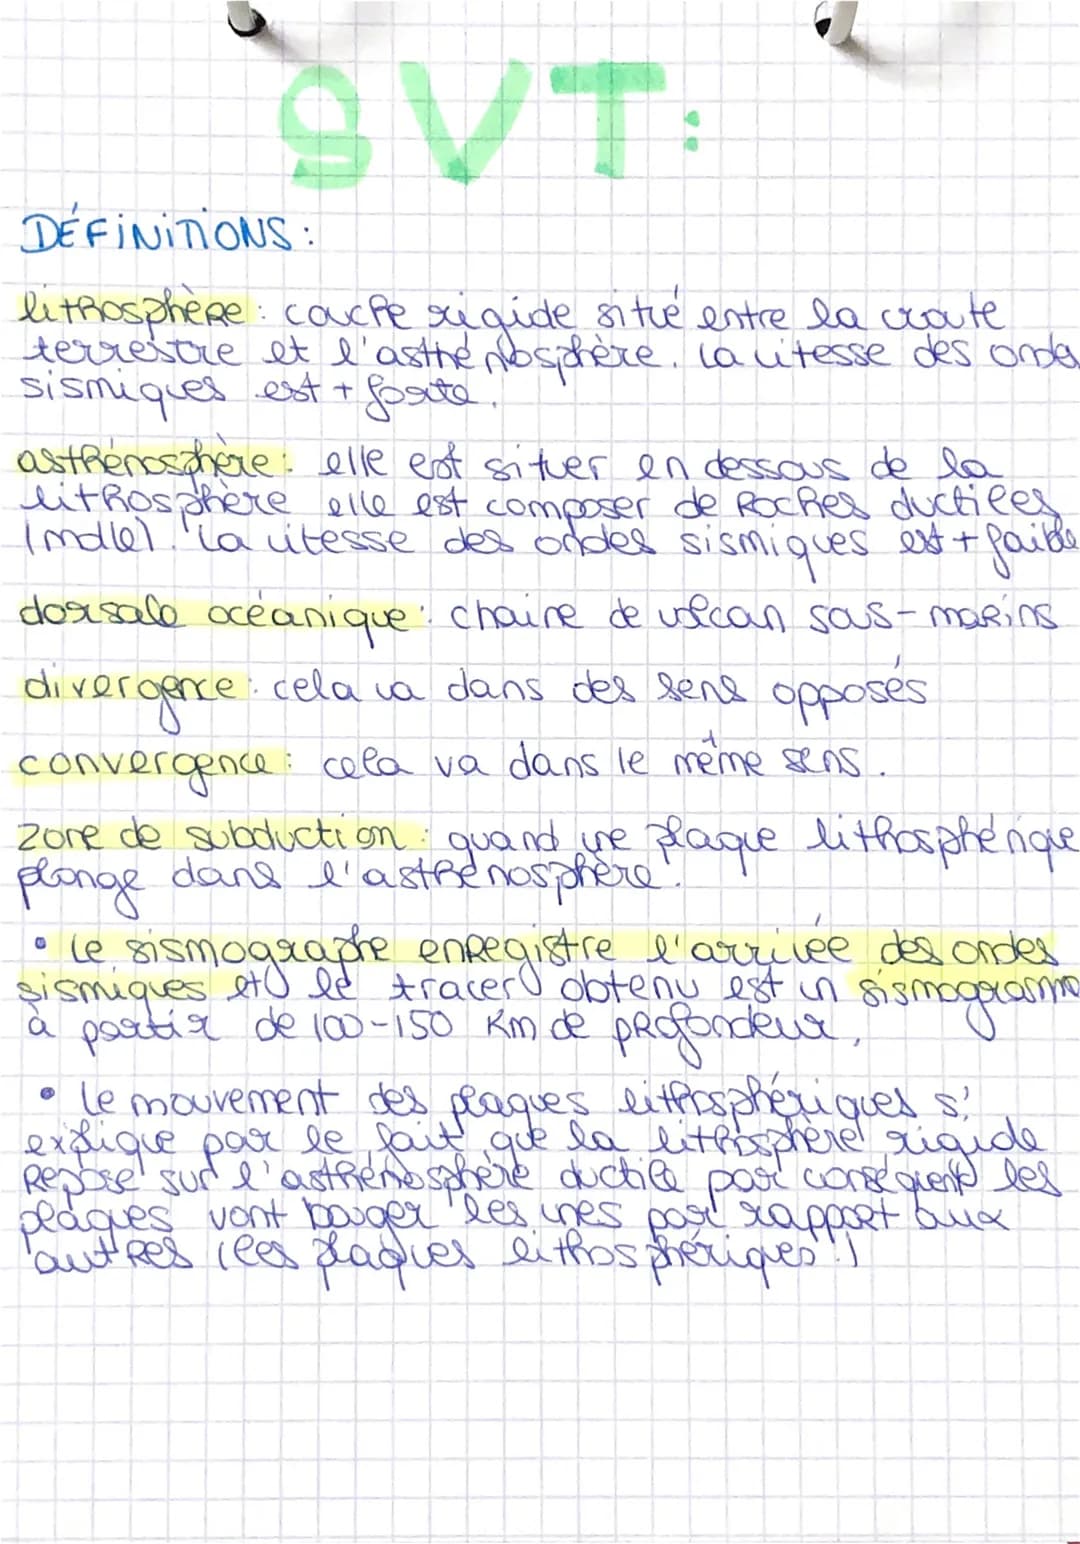 SVT:
DÉFINITIONS:
lithosphère: couche rigide situé entre la croute
terrestre et l'asthénosphère. la vitesse des ondes
sismiques est + forte.
asthénosphère: elle est situer en dessous de la
lithosphère elle est composer de Roches ductiles
(molle). La vitesse des ondes sismiques est + faible
dorsale océanique: chaine de volcan sous-marins
divergence: cela va dans des sens opposés
convergence: cela va dans le même sens.
zone de subduction: quand une plaque lithosphérique
plonge dans l'asthénosphère.
• Le sismographe enregistre l'arrivée des ondes
sismiques et le tracer obtenu est un sismogramme
à partir de 100-150 Km de profondeur.
• Le mouvement des plaques lithosphériques s'
explique par le fait que la lithosphère rigide
Repose sur l'asthénosphère ductile par conséquent les
plaques vont bouger les unes par rapport aux
autres (les plaques lithosphériques.)